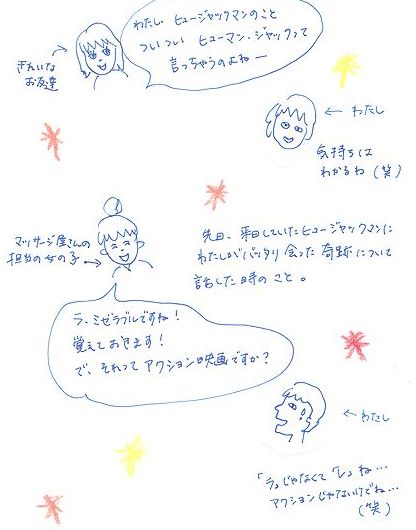 わたし ヒュージャックマンのこと
ついつい ヒューマン・ジャックって
言っちゃうのよねー
きれいな
お友達
← わたし
気持ちは
わかるね(笑)
マッサージ屋さんの
担当の女の子
先日、来日していたヒュージャックマンに
わたしがバッタリ会った奇跡について
話した時のこと。
ラ・ミゼラブルですね!
覚えておきます!
で、それってアクション映画ですか?
← わたし
「ラ」じゃなくて「レ」ね…
アクションじゃないけどね…
(笑)